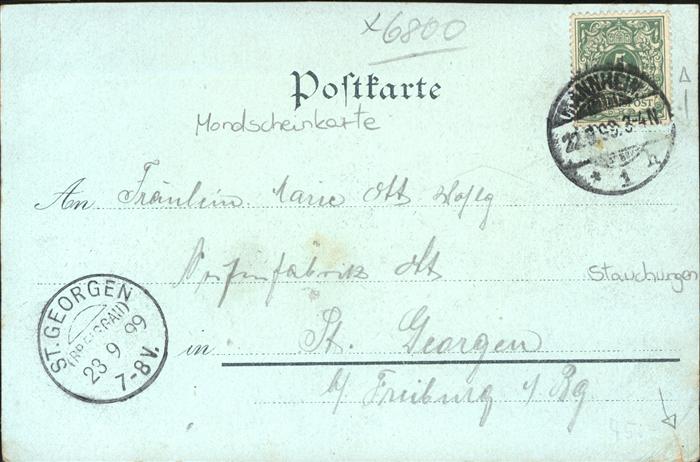 x6800
Postkarte
5
POST
MANNHEIM
22.9.99.3-4N
* 1 h
Mondscheinkarte
An Fräulein Marie Ott
Ott
Stauchungen
ST. GEORGEN
(BREISGAU)
23 9 99
7-8V.
in St. Georgen
b/ Freiburg i/Bg
45.-